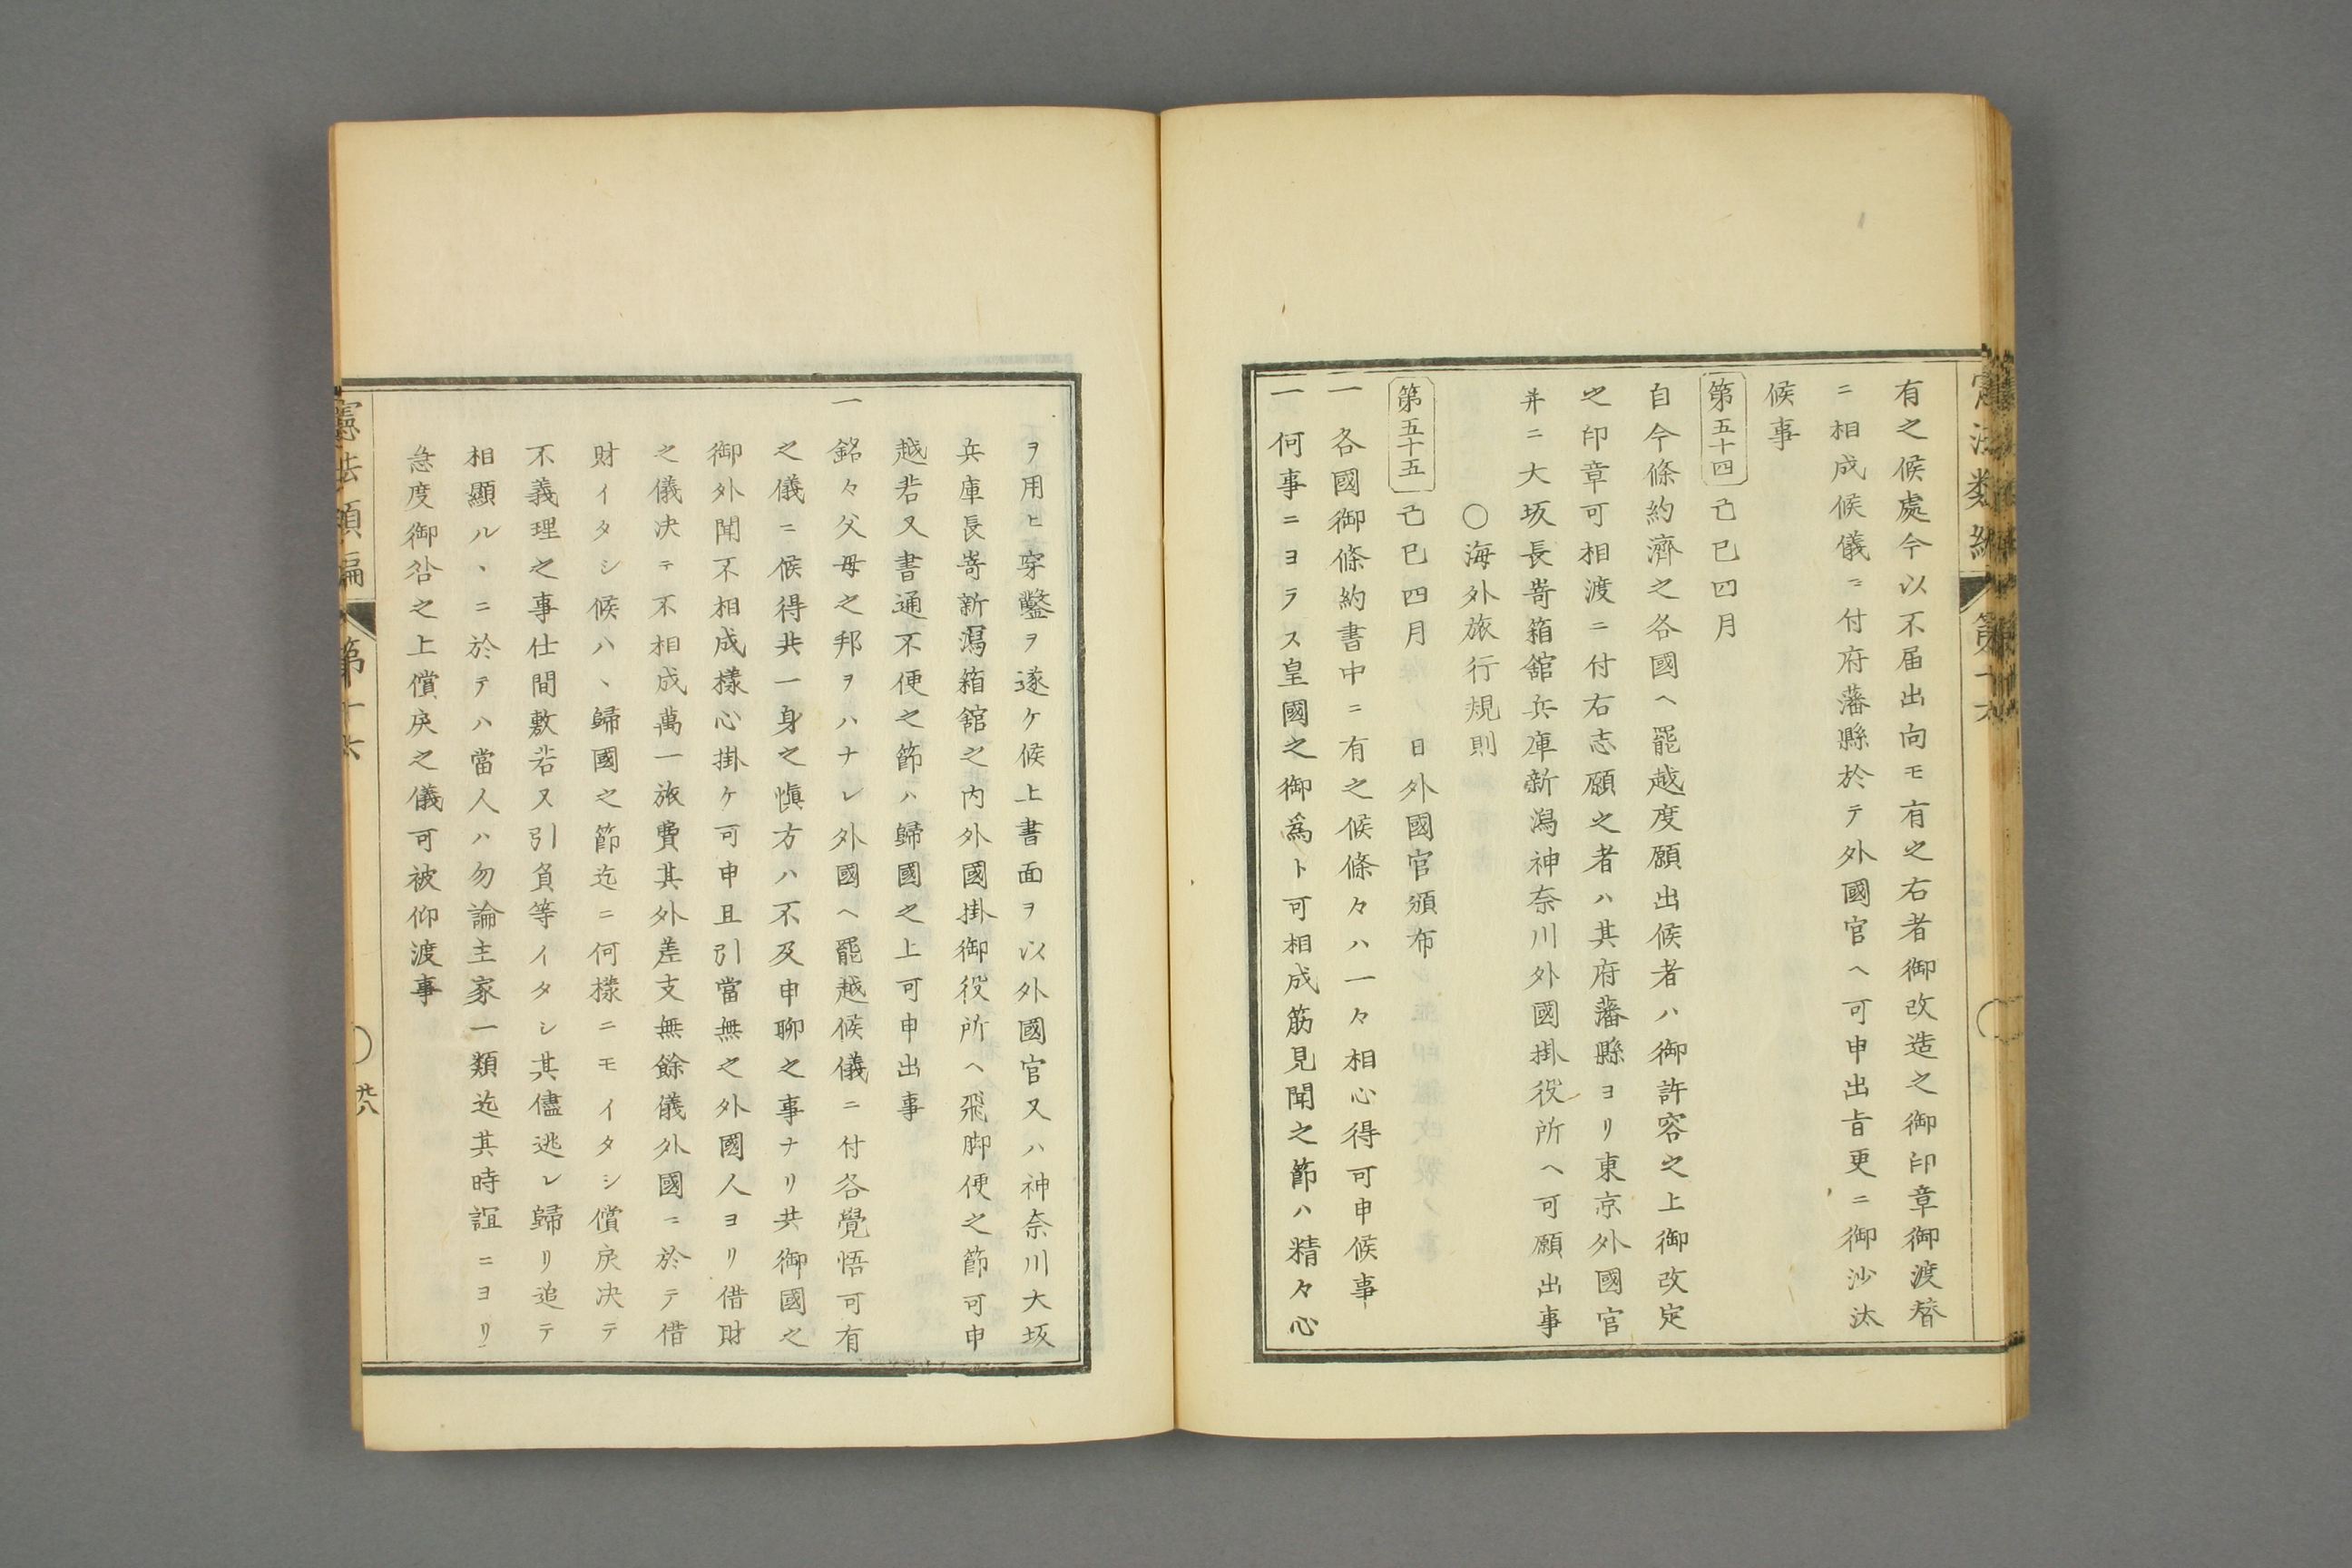 有之候處今以不届出向モ有之右者御改造之御印章御渡替
ニ相成候儀ニ付府藩縣於テ外國官ヘ可申出旨更ニ御沙汰
候事
第五十四 己巳四月
自今條約濟之各國ヘ罷越度願出候者ハ御許容之上御改定
之印章可相渡ニ付右志願之者ハ其府藩縣ヨリ東京外國官
并ニ大坂長嵜箱舘兵庫新潟神奈川外國掛役所ヘ可願出事
○海外旅行規則
第五十五 己巳四月 日外國官頒布
一 各國御條約書中ニ有之候條々ハ一々相心得可申候事
一 何事ニヨラス皇國之御爲ト可相成筋見聞之節ハ精々心
ヲ用ヒ穿鑿ヲ遂ケ候上書面ヲ以外國官又ハ神奈川大坂
兵庫長嵜新潟箱舘之内外國掛御役所ヘ飛脚便之節可申
越若又書通不便之節ハ歸國之上可申出事
一 銘々父母之邦ヲハナレ外國ヘ罷越候儀ニ付各覺悟可有
之儀ニ候得共一身之愼方ハ不及申聊之事ナリ共御國之
御外聞不相成樣心掛ケ可申且引當無之外國人ヨリ借財
之儀决テ不相成萬一旅費其外差支無餘儀外國ニ於テ借
財イタシ候ハ、歸國之節迄ニ何樣ニモイタシ償戻决テ
不義理之事仕間敷若又引負等イタシ其儘逃レ歸リ追テ
相顯ル、ニ於テハ當人ハ勿論主家一類迄其時誼ニヨリ
急度御咎之上償戻之儀可被仰渡事
憲法類編 第十六 廿八